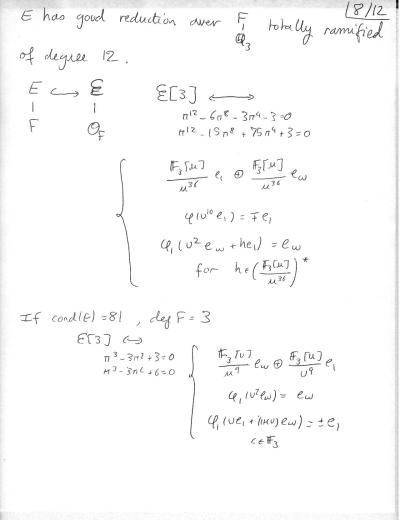 8/12
E has good reduction over F totally ramified
Q_3
of degree 12.
E ↪ ℰ
F O_F
ℰ[3] ↔
π^12 - 6π^8 - 3π^4 - 3 = 0
π^12 - 15π^8 + 75π^4 + 3 = 0
F_3[u]/u^36 e_1 ⊕ F_3[u]/u^36 e_ω
φ_1(u^10 e_1) = ∓ e_1
φ_1(u^2 e_ω + h e_1) = e_ω
for h ∈ (F_3[u]/u^36)^*
If cond(E) = 81, deg F = 3
ℰ[3] ↔
π^3 - 3π^2 + 3 = 0
F_3[u]/u^9 e_ω ⊕ F_3[u]/u^9 e_1
φ_1(u^2 e_ω) = e_ω
= ± e_1
c ∈ F_3